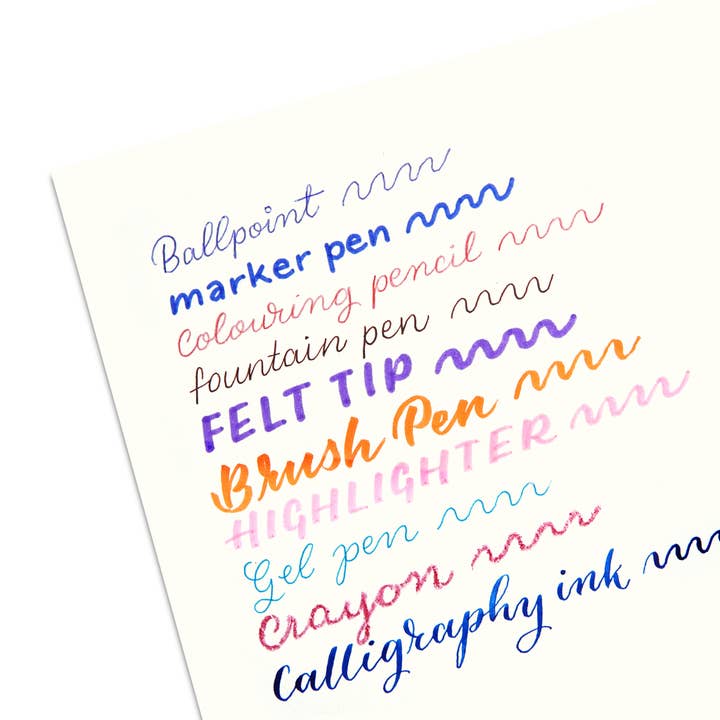 Ballpoint
marker pen
Colouring pencil
fountain pen
FELT TIP
Brush Pen
HIGHLIGHTER
Gel pen
Crayon
Calligraphy ink